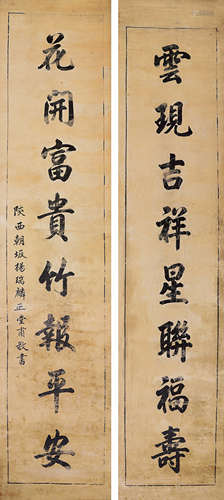 雲現吉祥星聯福壽
花開富貴竹報平安
陝西朝坂楊瑞麟正堂甫敬書